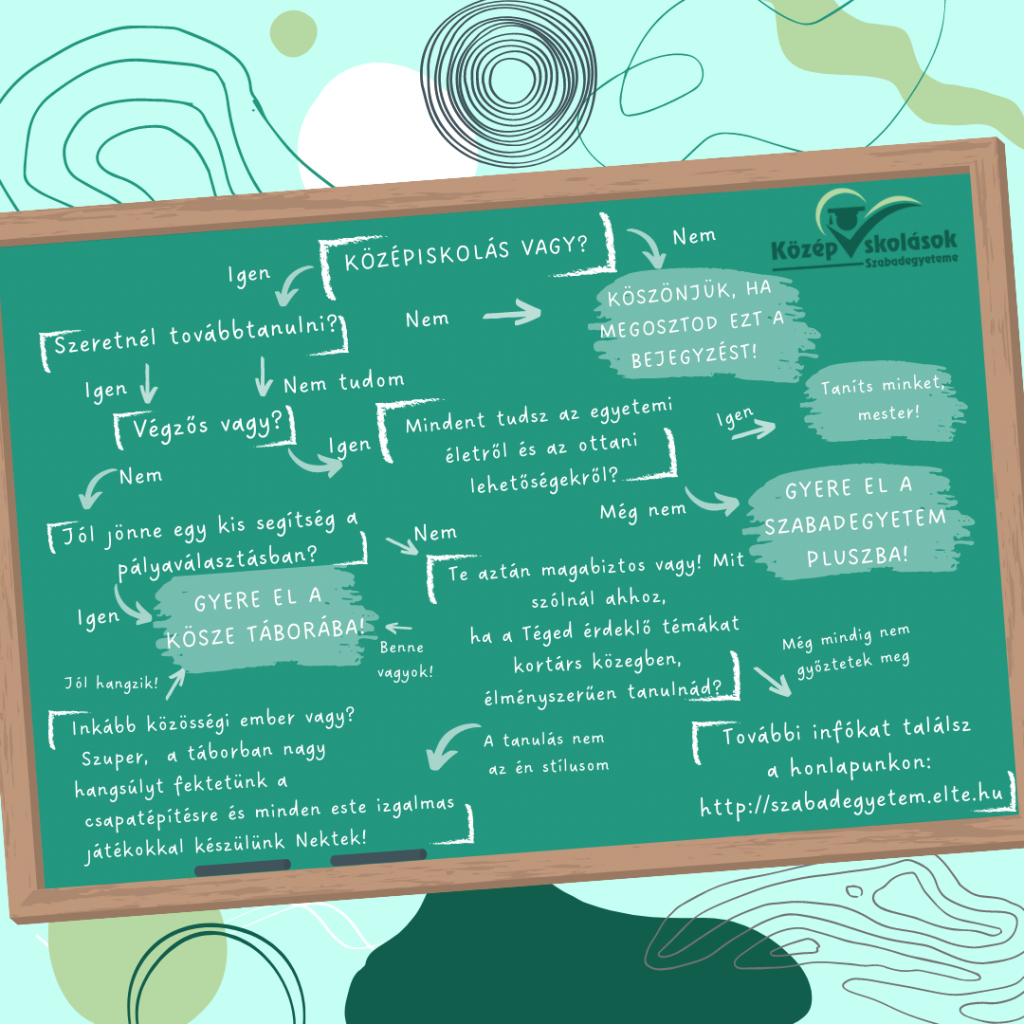 KÖZÉPISKOLÁS VAGY?
Igen
Nem
Közép skolások
Szabadegyeteme
KÖSZÖNJÜK, HA
MEGOSZTOD EZT A
BEJEGYZÉST!
Szeretnél továbbtanulni?
Nem
Igen
Nem tudom
Végzős vagy?
Igen
Mindent tudsz az egyetemi
életről és az ottani
lehetőségekről?
Igen
Taníts minket,
mester!
Még nem
GYERE EL A
SZABADEGYETEM
PLUSZBA!
Nem
Jól jönne egy kis segítség a
pályaválasztásban?
Nem
Igen
GYERE EL A
KÖSZE TÁBORÁBA!
Te aztán magabiztos vagy! Mit
szólnál ahhoz,
ha a Téged érdeklő témákat
kortárs közegben,
élményszerűen tanulnád?
Benne
vagyok!
Még mindig nem
győztetek meg
Jól hangzik!
Inkább közösségi ember vagy?
Szuper, a táborban nagy
hangsúlyt fektetünk a
csapatépítésre és minden este izgalmas
játékokkal készülünk Nektek!
A tanulás nem
az én stílusom
További infókat találsz
a honlapunkon:
http://szabadegyetem.elte.hu